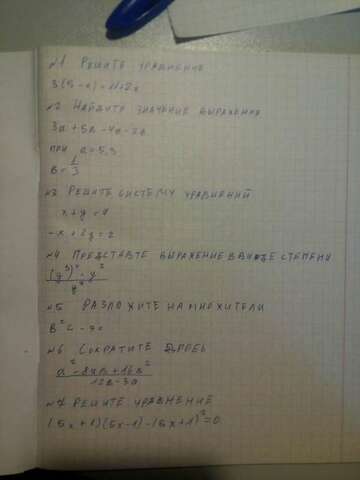 N1 РЕШИТЕ УРАВНЕНИЕ
3(5-x)=11+2x
N2 НАЙДИТЕ ЗНАЧЕНИЕ ВЫРАЖЕНИЯ
3a+5a-4a-2a
ПРИ a=5,3
в=1/3
N3 РЕШИТЕ СИСТЕМУ УРАВНЕНИЙ
x+y=4
-x+2y=2
N4 ПРЕДСТАВТЕ ВЫРАЖЕНИЕ В ВИДЕ СТЕПЕНИ
N5 РАЗЛОЖИТЕ НА МНОЖИТЕЛИ
N6 СОКРАТИТЕ ДРОБЬ
N7 РЕШИТЕ УРАВНЕНИЕ
(5x+1)(5x-1)-(5x+1)²=0